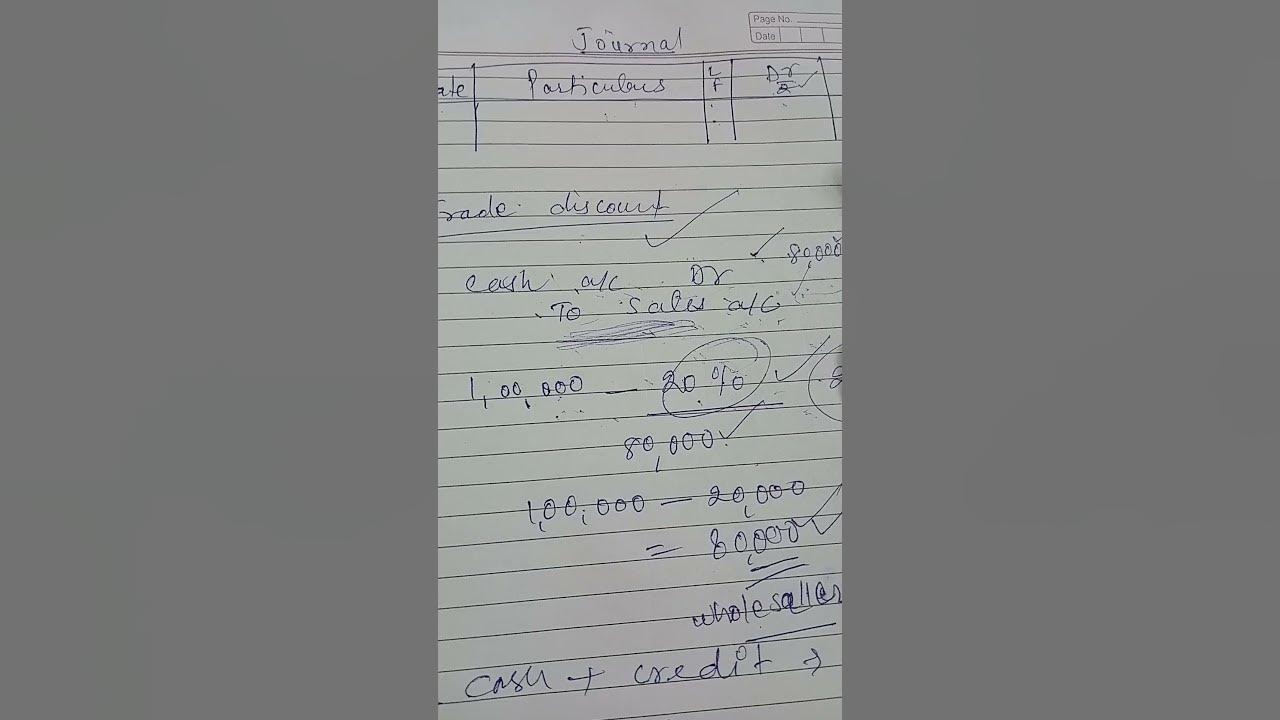 Page No.
Date
Journal
ate Particulars L F Dr ₹
rade discount
Cash a/c Dr 80,000
To Sales a/c
1,00,000 — 20%
80,000
1,00,000 — 20,000
= 80,000
wholesaller
cash + credit →